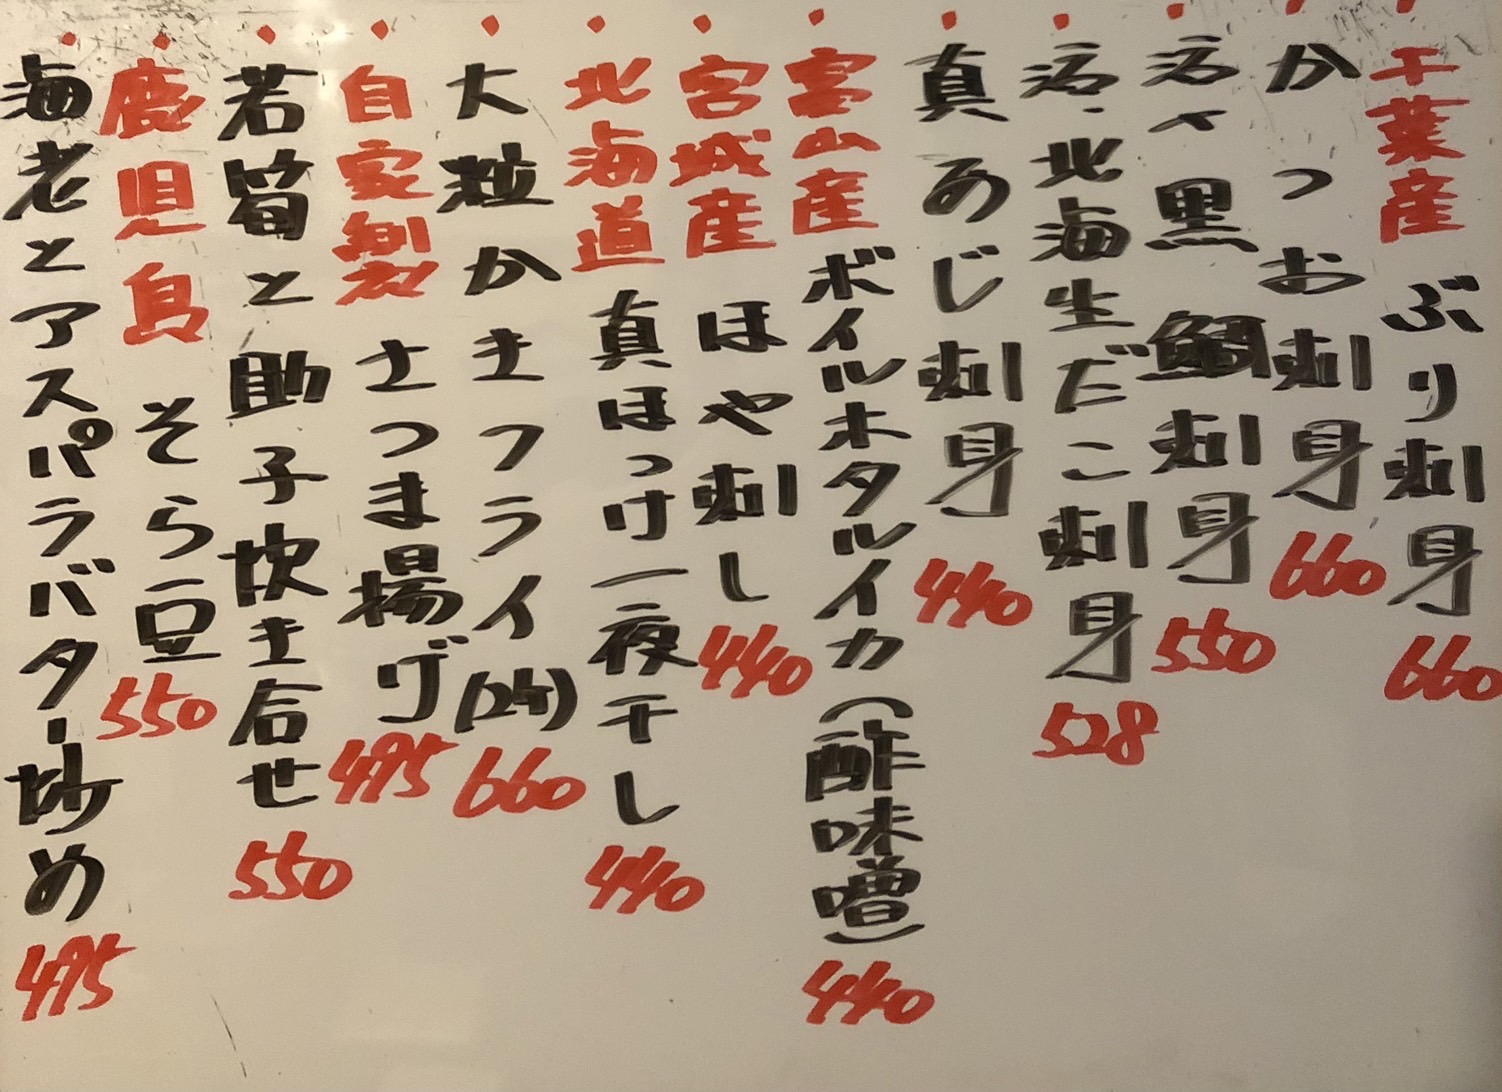 千葉産 ぶり刺身 660
かつお刺身 660
活〆黒鯛刺身 550
活〆北海生だこ刺身 528
真あじ刺身 440
富山産 ボイルホタルイカ(酢味噌) 440
宮城産 ほや刺し 440
北海道 真ほっけ一夜干し 440
大粒かきフライ(2ケ) 660
自家製 さつま揚げ 495
若筍と助子炊き合せ 550
鹿児島 そら豆 550
海老とアスパラバター炒め 495